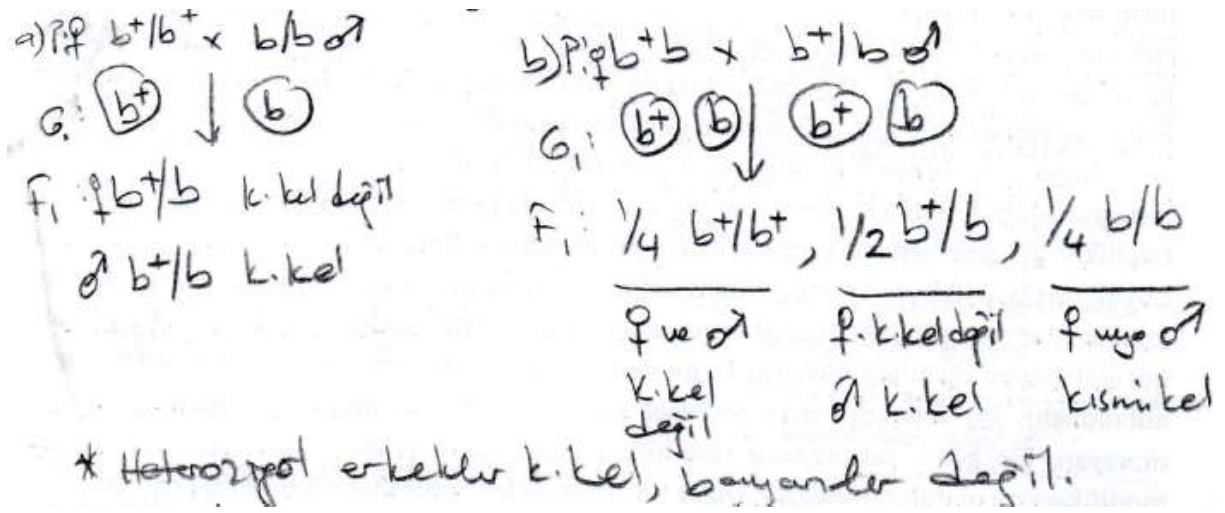 a) P: ♀ b⁺/b⁺ x b/b ♂
G: b⁺ b
F₁: ♀ b⁺/b k.kel değil
♂ b⁺/b k.kel
b) P: ♀ b⁺b x b⁺/b ♂
G₁: b⁺ b b⁺ b
F₁: 1/4 b⁺/b⁺, 1/2 b⁺/b, 1/4 b/b
♀ ve ♂ ♀.k.kel değil ♀ veya ♂
k.kel ♂ k.kel kısmi kel
değil
* Heterozigot erkekler k.kel, bayanlar değil.